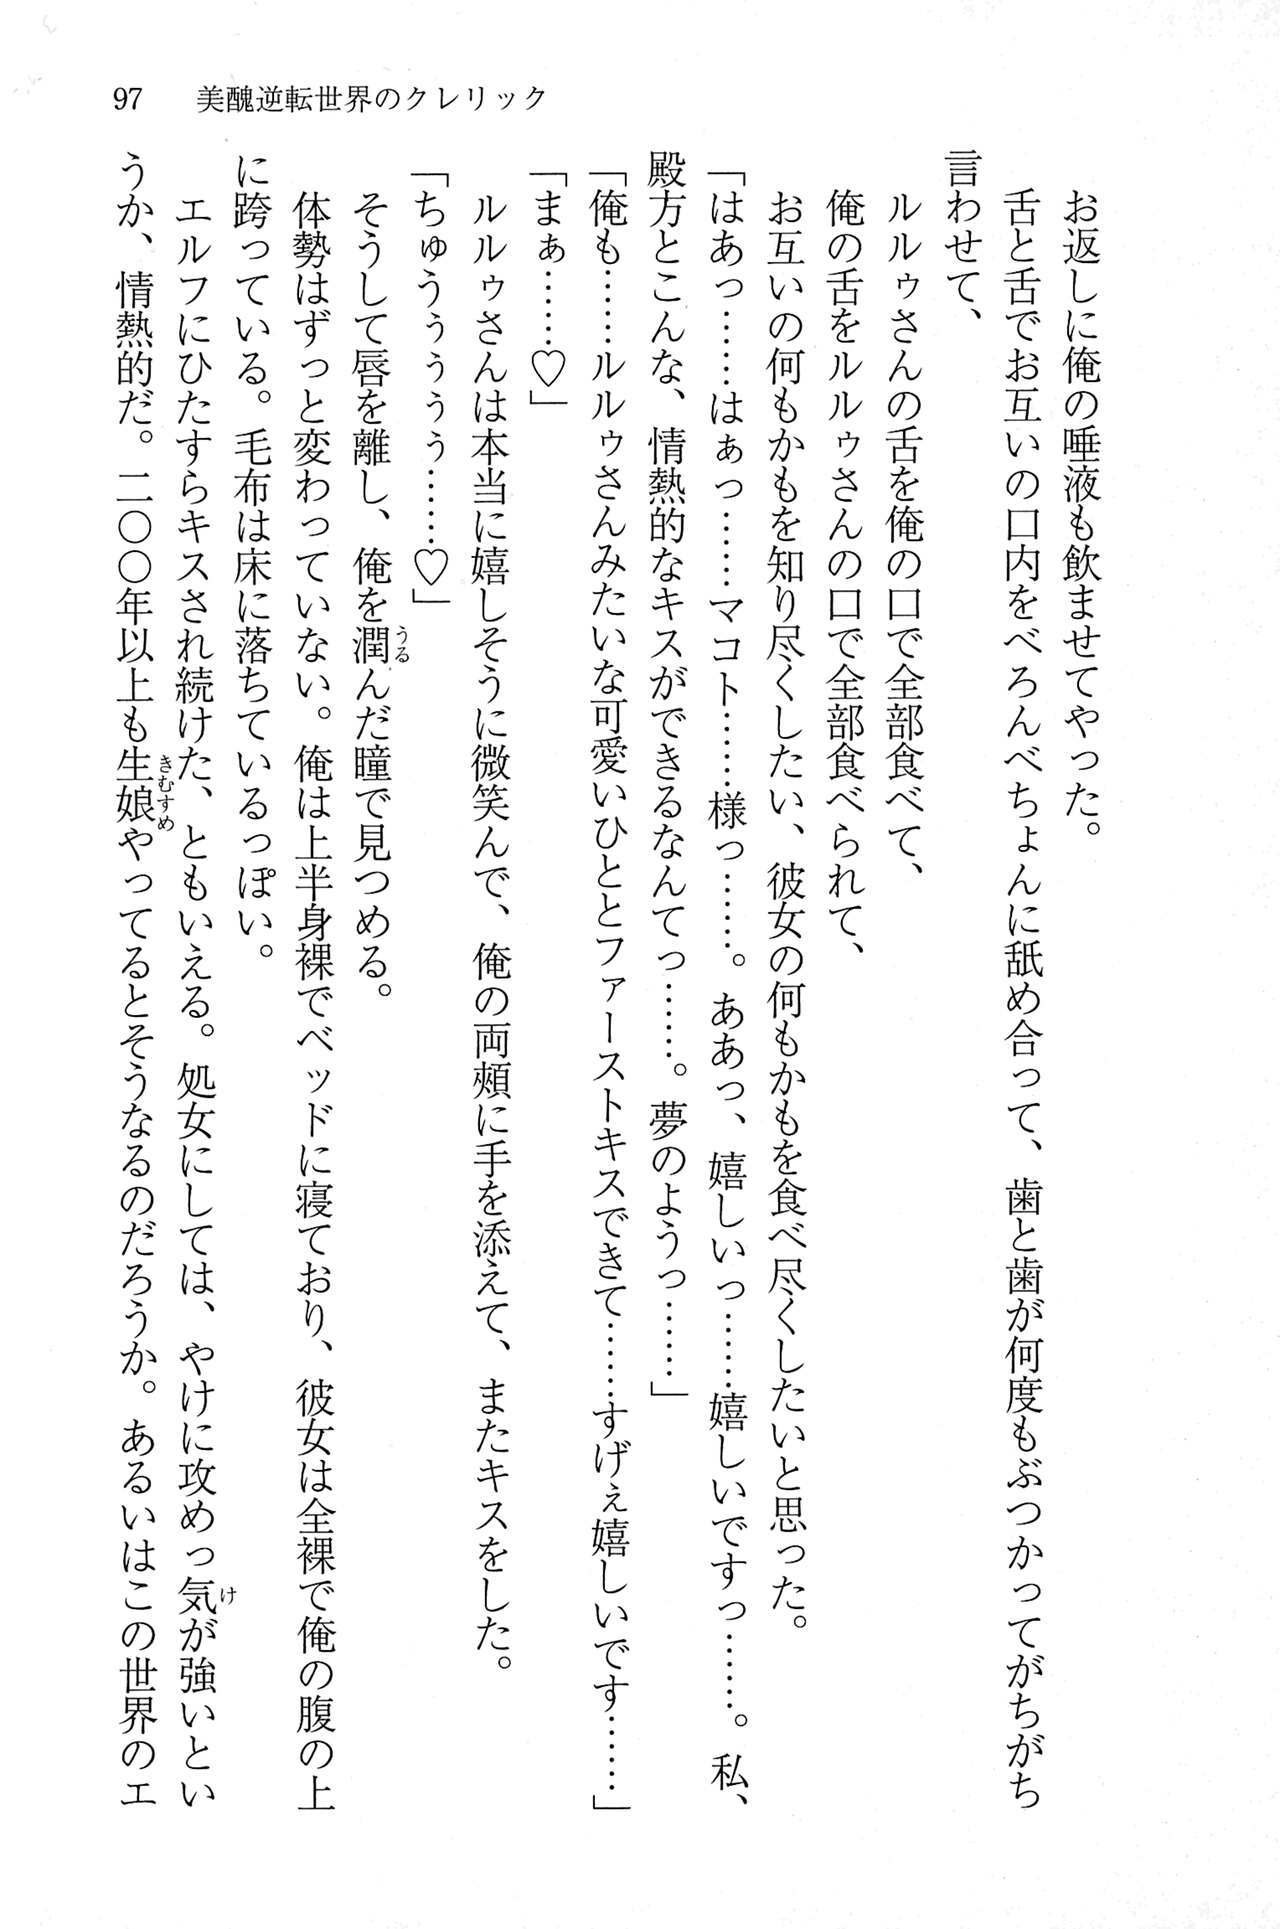 97　美醜逆転世界のクレリック
お返しに俺の唾液も飲ませてやった。
舌と舌でお互いの口内をべろんべちょんに舐め合って、歯と歯が何度もぶつかってがちがち
言わせて、
ルルゥさんの舌を俺の口で全部食べて、
俺の舌をルルゥさんの口で全部食べられて、
お互いの何もかもを知り尽くしたい、彼女の何もかもを食べ尽くしたいと思った。
「はあっ……はぁっ……マコト……様っ……。ああっ、嬉しいっ……嬉しいですっ……。私、
殿方とこんな、情熱的なキスができるなんてっ……。夢のようっ……」
「俺も……ルルゥさんみたいな可愛いひととファーストキスできて……すげぇ嬉しいです……」
「まぁ……♡」
ルルゥさんは本当に嬉しそうに微笑んで、俺の両頰に手を添えて、またキスをした。
「ちゅうぅぅぅぅ……♡」
そうして唇を離し、俺を潤んだ瞳で見つめる。
体勢はずっと変わっていない。俺は上半身裸でベッドに寝ており、彼女は全裸で俺の腹の上
に跨っている。毛布は床に落ちているっぽい。
エルフにひたすらキスされ続けた、ともいえる。処女にしては、やけに攻めっ気が強いとい
うか、情熱的だ。二〇〇年以上も生娘やってるとそうなるのだろうか。あるいはこの世界のエ
うる
きむすめ
け